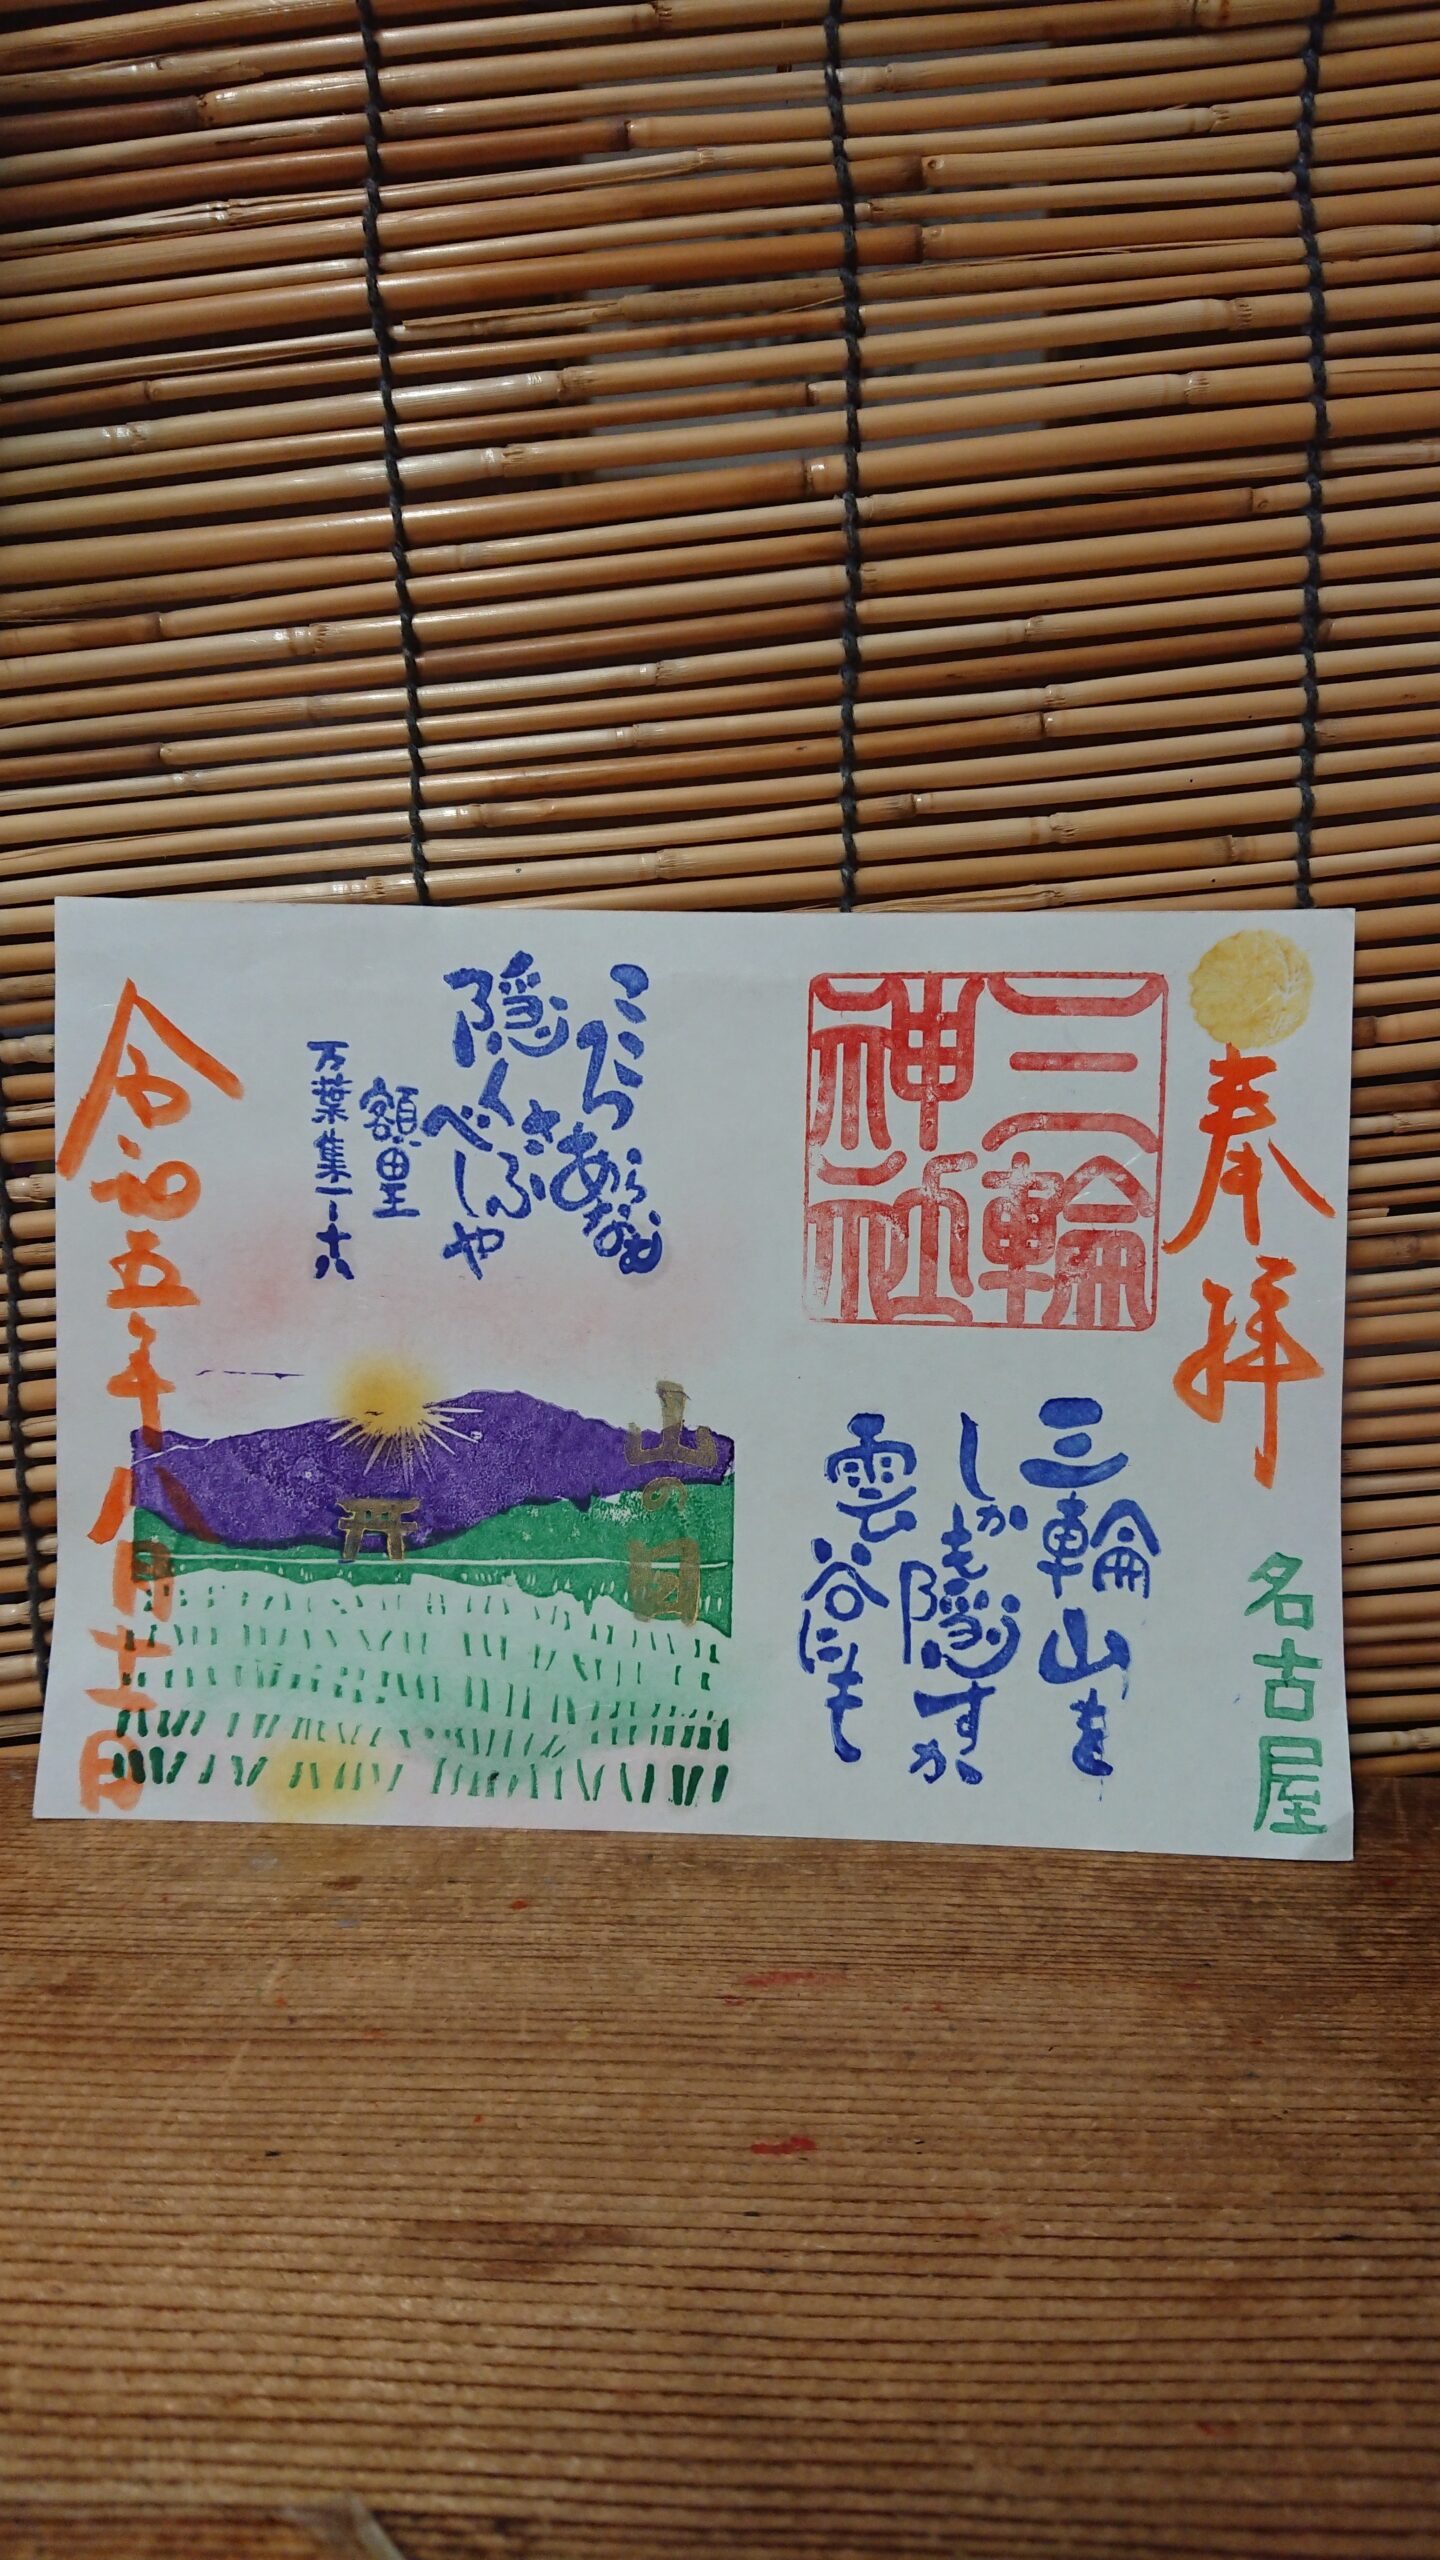 奉拝
名古屋
三輪
神社
三輪山を
しかも隠すか
雲谷にも
こころあらなむ
隠くさふべしや
額田王
万葉集一ー十八
山の日
令和五年八月十一日